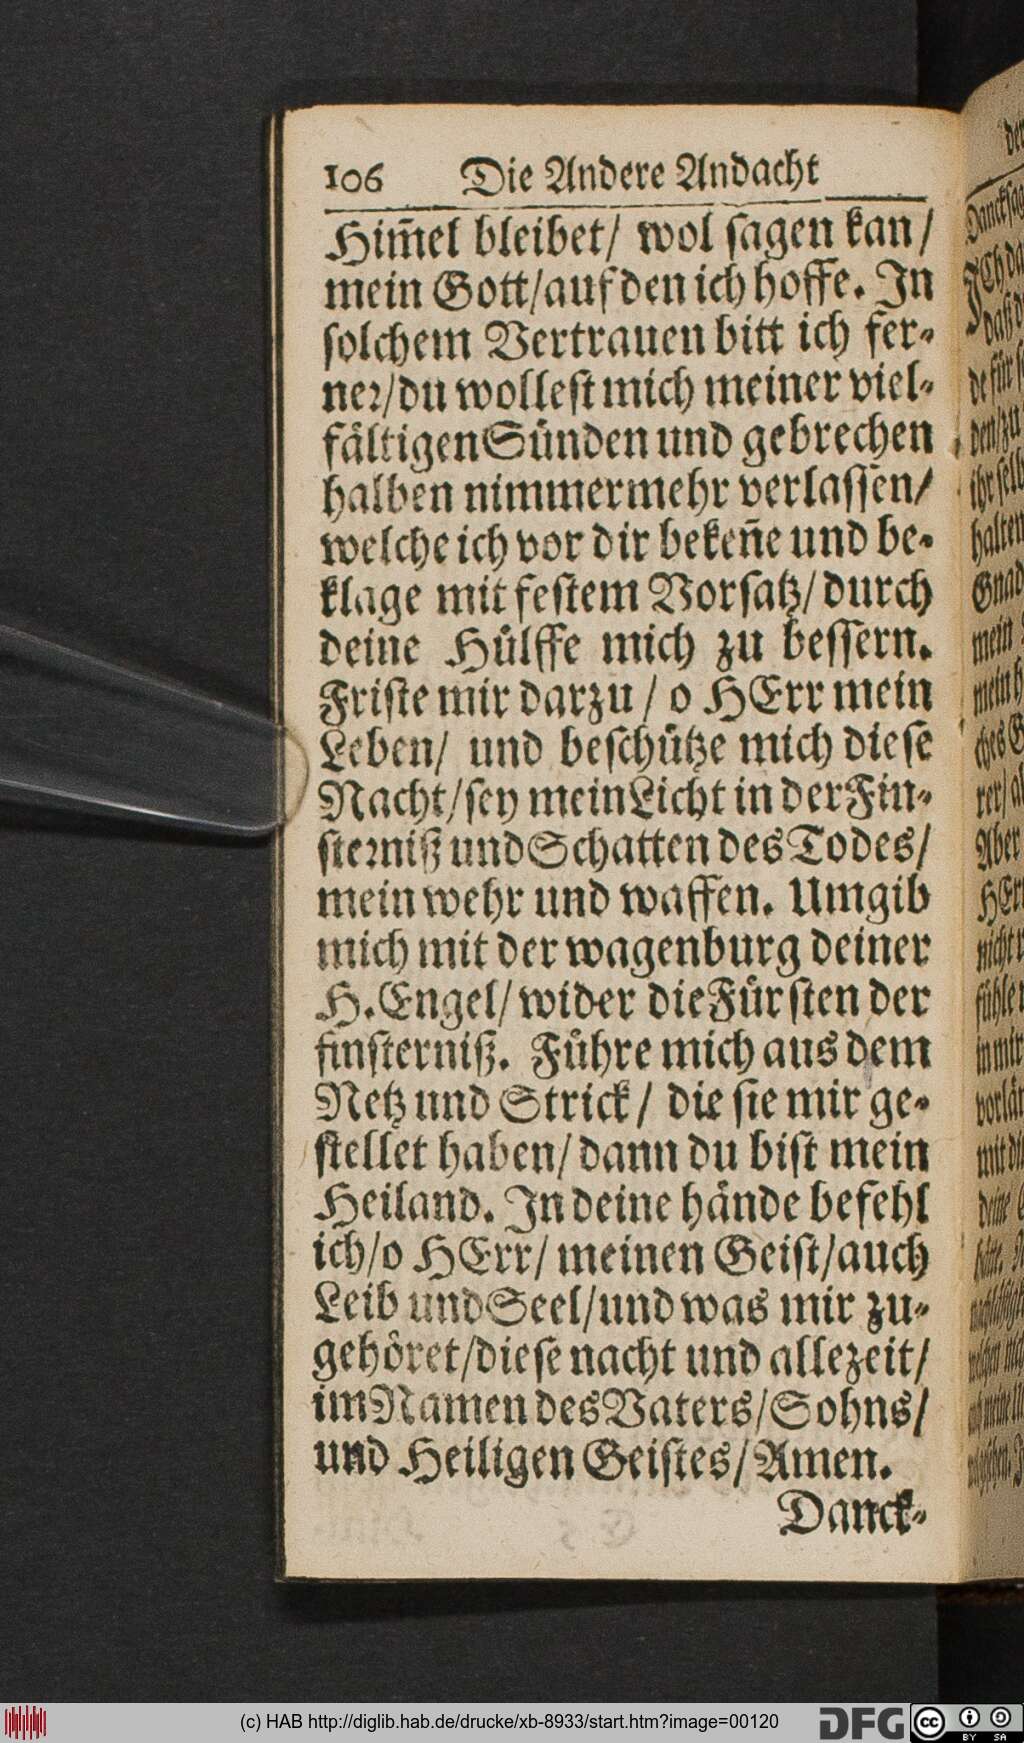 106 Die Andere Andacht
Him̃el bleibet/ wol sagen kan/
mein Gott/auf den ich hoffe. In
solchem Vertrauen bitt ich fer-
ner/du wollest mich meiner viel-
fältigen Sünden und gebrechen
halben nimmermehr verlassen/
welche ich vor dir bekeñe und be-
klage mit festem Vorsatz/durch
deine Hülffe mich zu bessern.
Friste mir darzu / o HErr mein
Leben/ und beschütze mich diese
Nacht/sey mein Licht in der Fin-
sterniß und Schatten des Todes/
mein wehr und waffen. Umgib
mich mit der wagenburg deiner
H. Engel/ wider die Fürsten der
finsterniß. Führe mich aus dem
Netz und Strick/ die sie mir ge-
stellet haben/dann du bist mein
Heiland. In deine hände befehl
ich/o HErr/ meinen Geist/auch
Leib und Seel/und was mir zu-
gehöret/diese nacht und allezeit/
im Namen des Vaters/Sohns/
und Heiligen Geistes/Amen.
Danck-
(c) HAB http://diglib.hab.de/drucke/xb-8933/start.htm?image=00120
DFG
cc BY SA